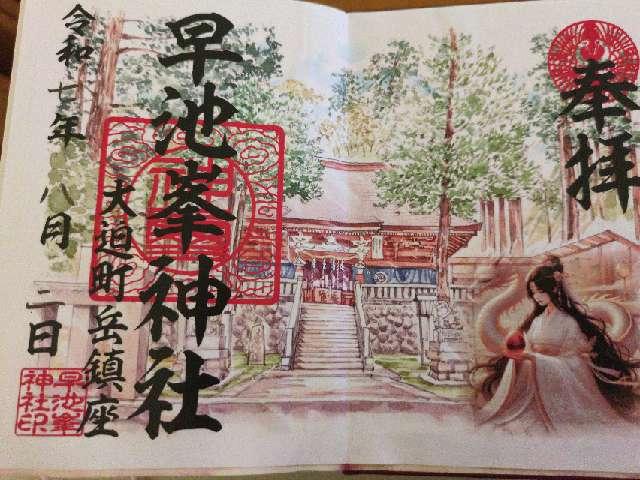 奉拝
早池峯神社
大迫町岳鎮座
令和七年八月二日
早池峯
神社印